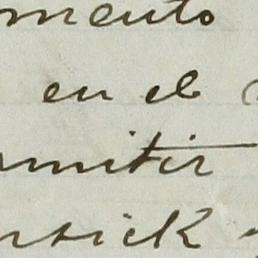 mento
en el
mitir
rsick